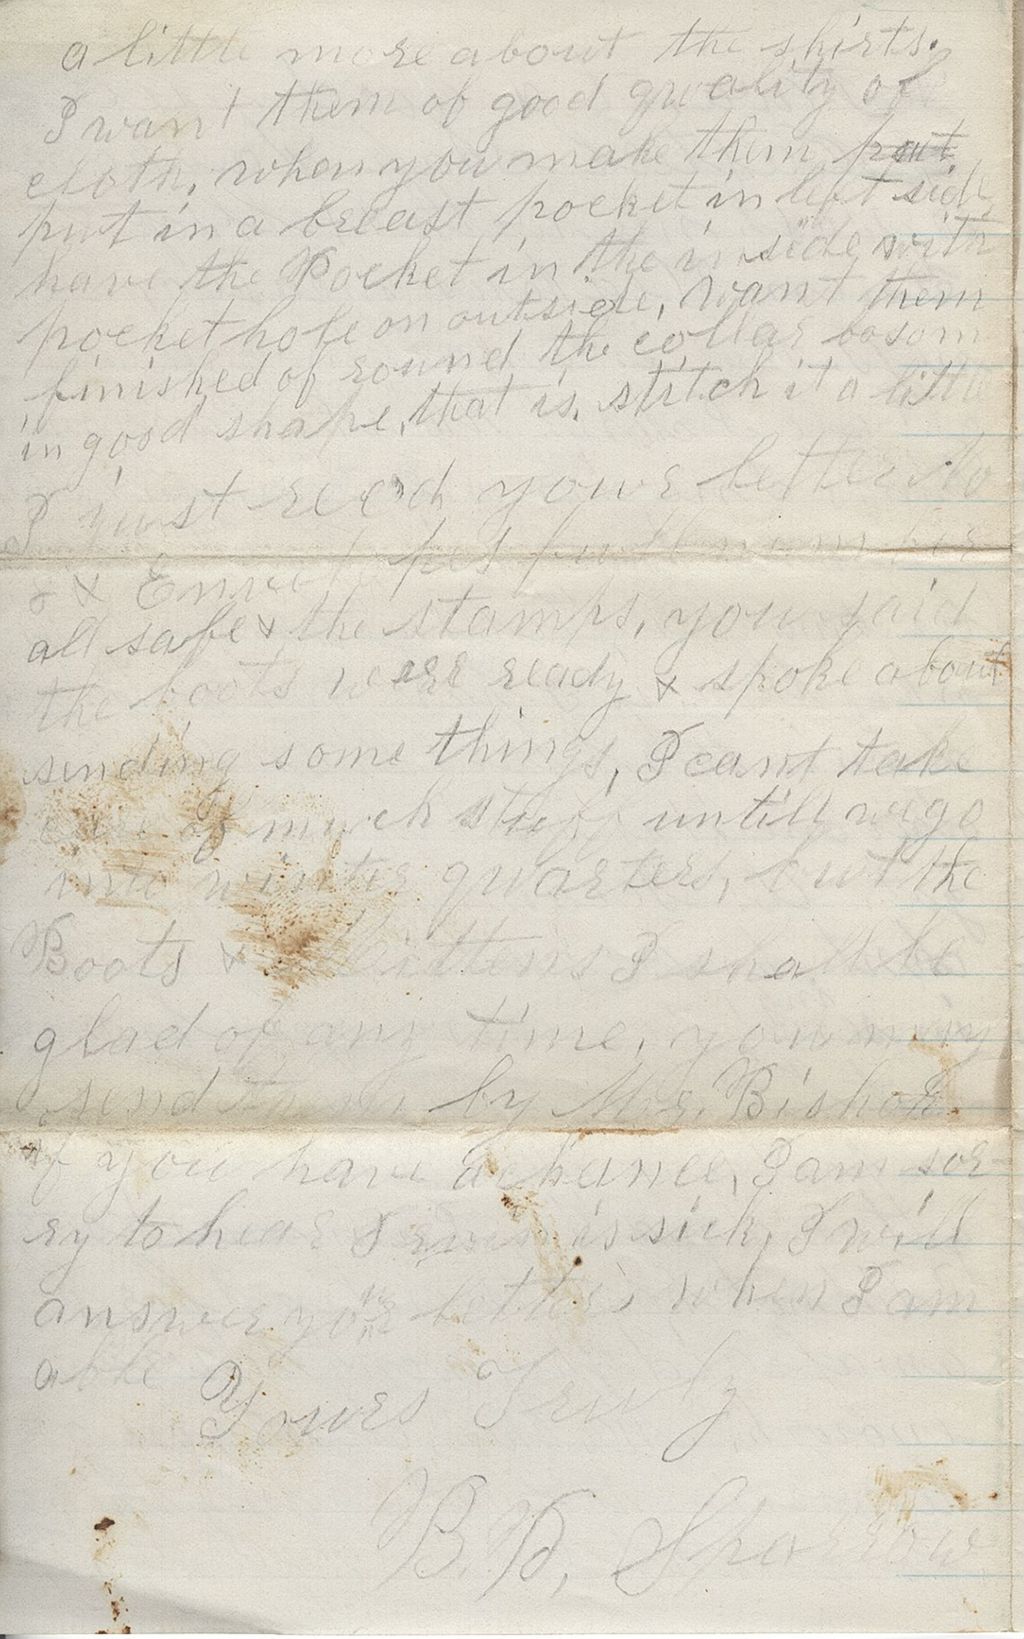 a little more about the shirts.
I want them of good quality of
cloth, when you make them pout
put in a breast pocket in left side
have the Pocket in the in side with
pocket hole on outside, want them
finished of round the collar bosom
in good shape, that is, stitch it a little
I just recd youre letter to
&
all safe & the stamps, you said
the boots were ready & spoke about
sending some things, I cant take
care of much stuff untill we go
into winter quarters, but the
Boots & Mittens I shall be
glad of any time, you may
send by Mrs. Bishop
if you have a chance, I am sor-
ry to hear is sick, I will
answer your letters when I am
able
Youres Truly
B. D, Sparrow